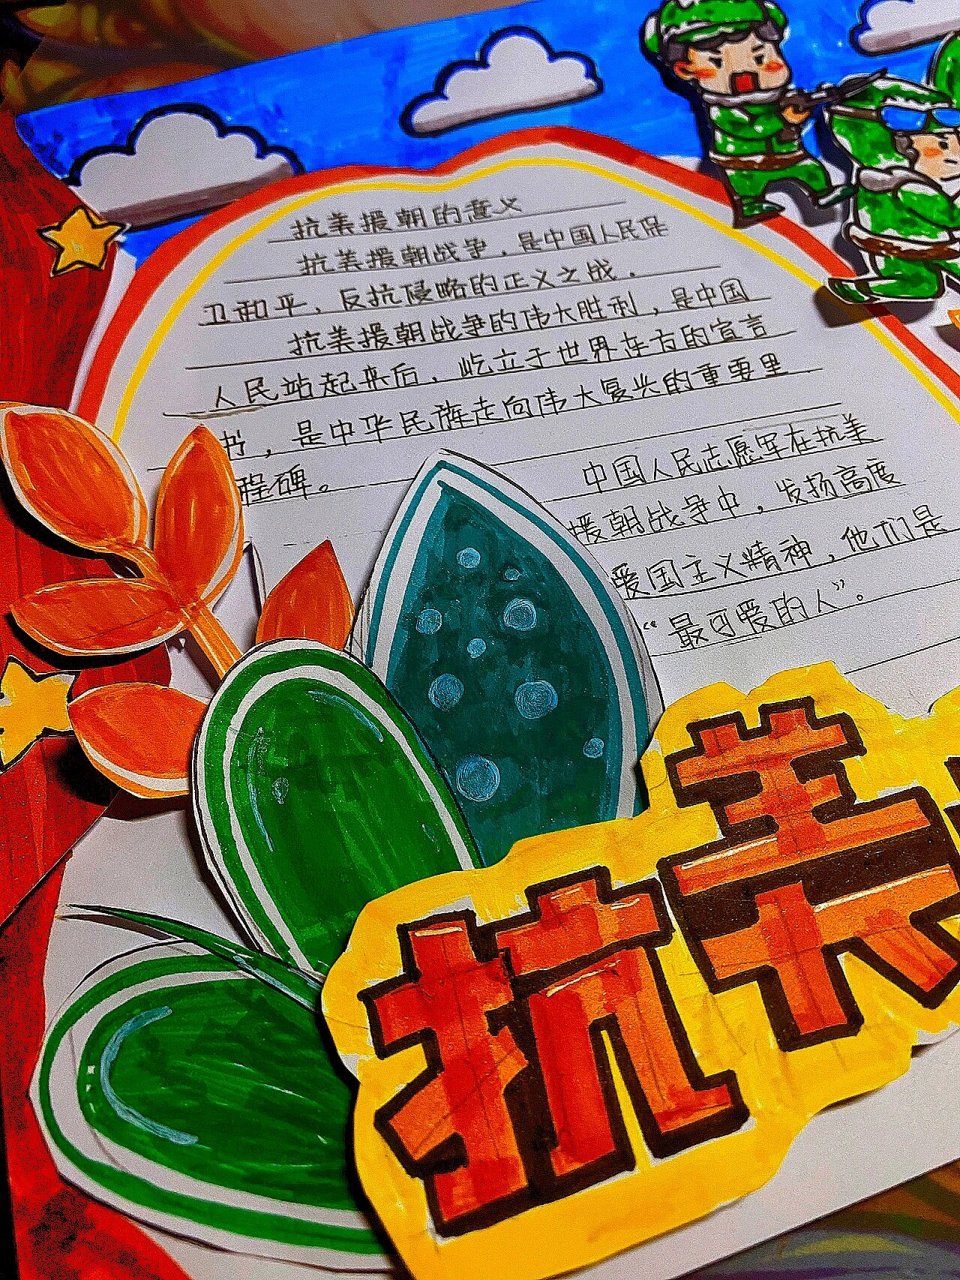 抗美援朝的意义
抗美援朝战争，是中国人民保
卫和平、反抗侵略的正义之战。
抗美援朝战争的伟大胜利，是中国
人民站起来后，屹立于世界东方的宣言
书，是中华民族走向伟大复兴的重要里
程碑。
中国人民志愿军在抗美
援朝战争中，发扬高度
爱国主义精神，他们是
“最可爱的人”。
抗美